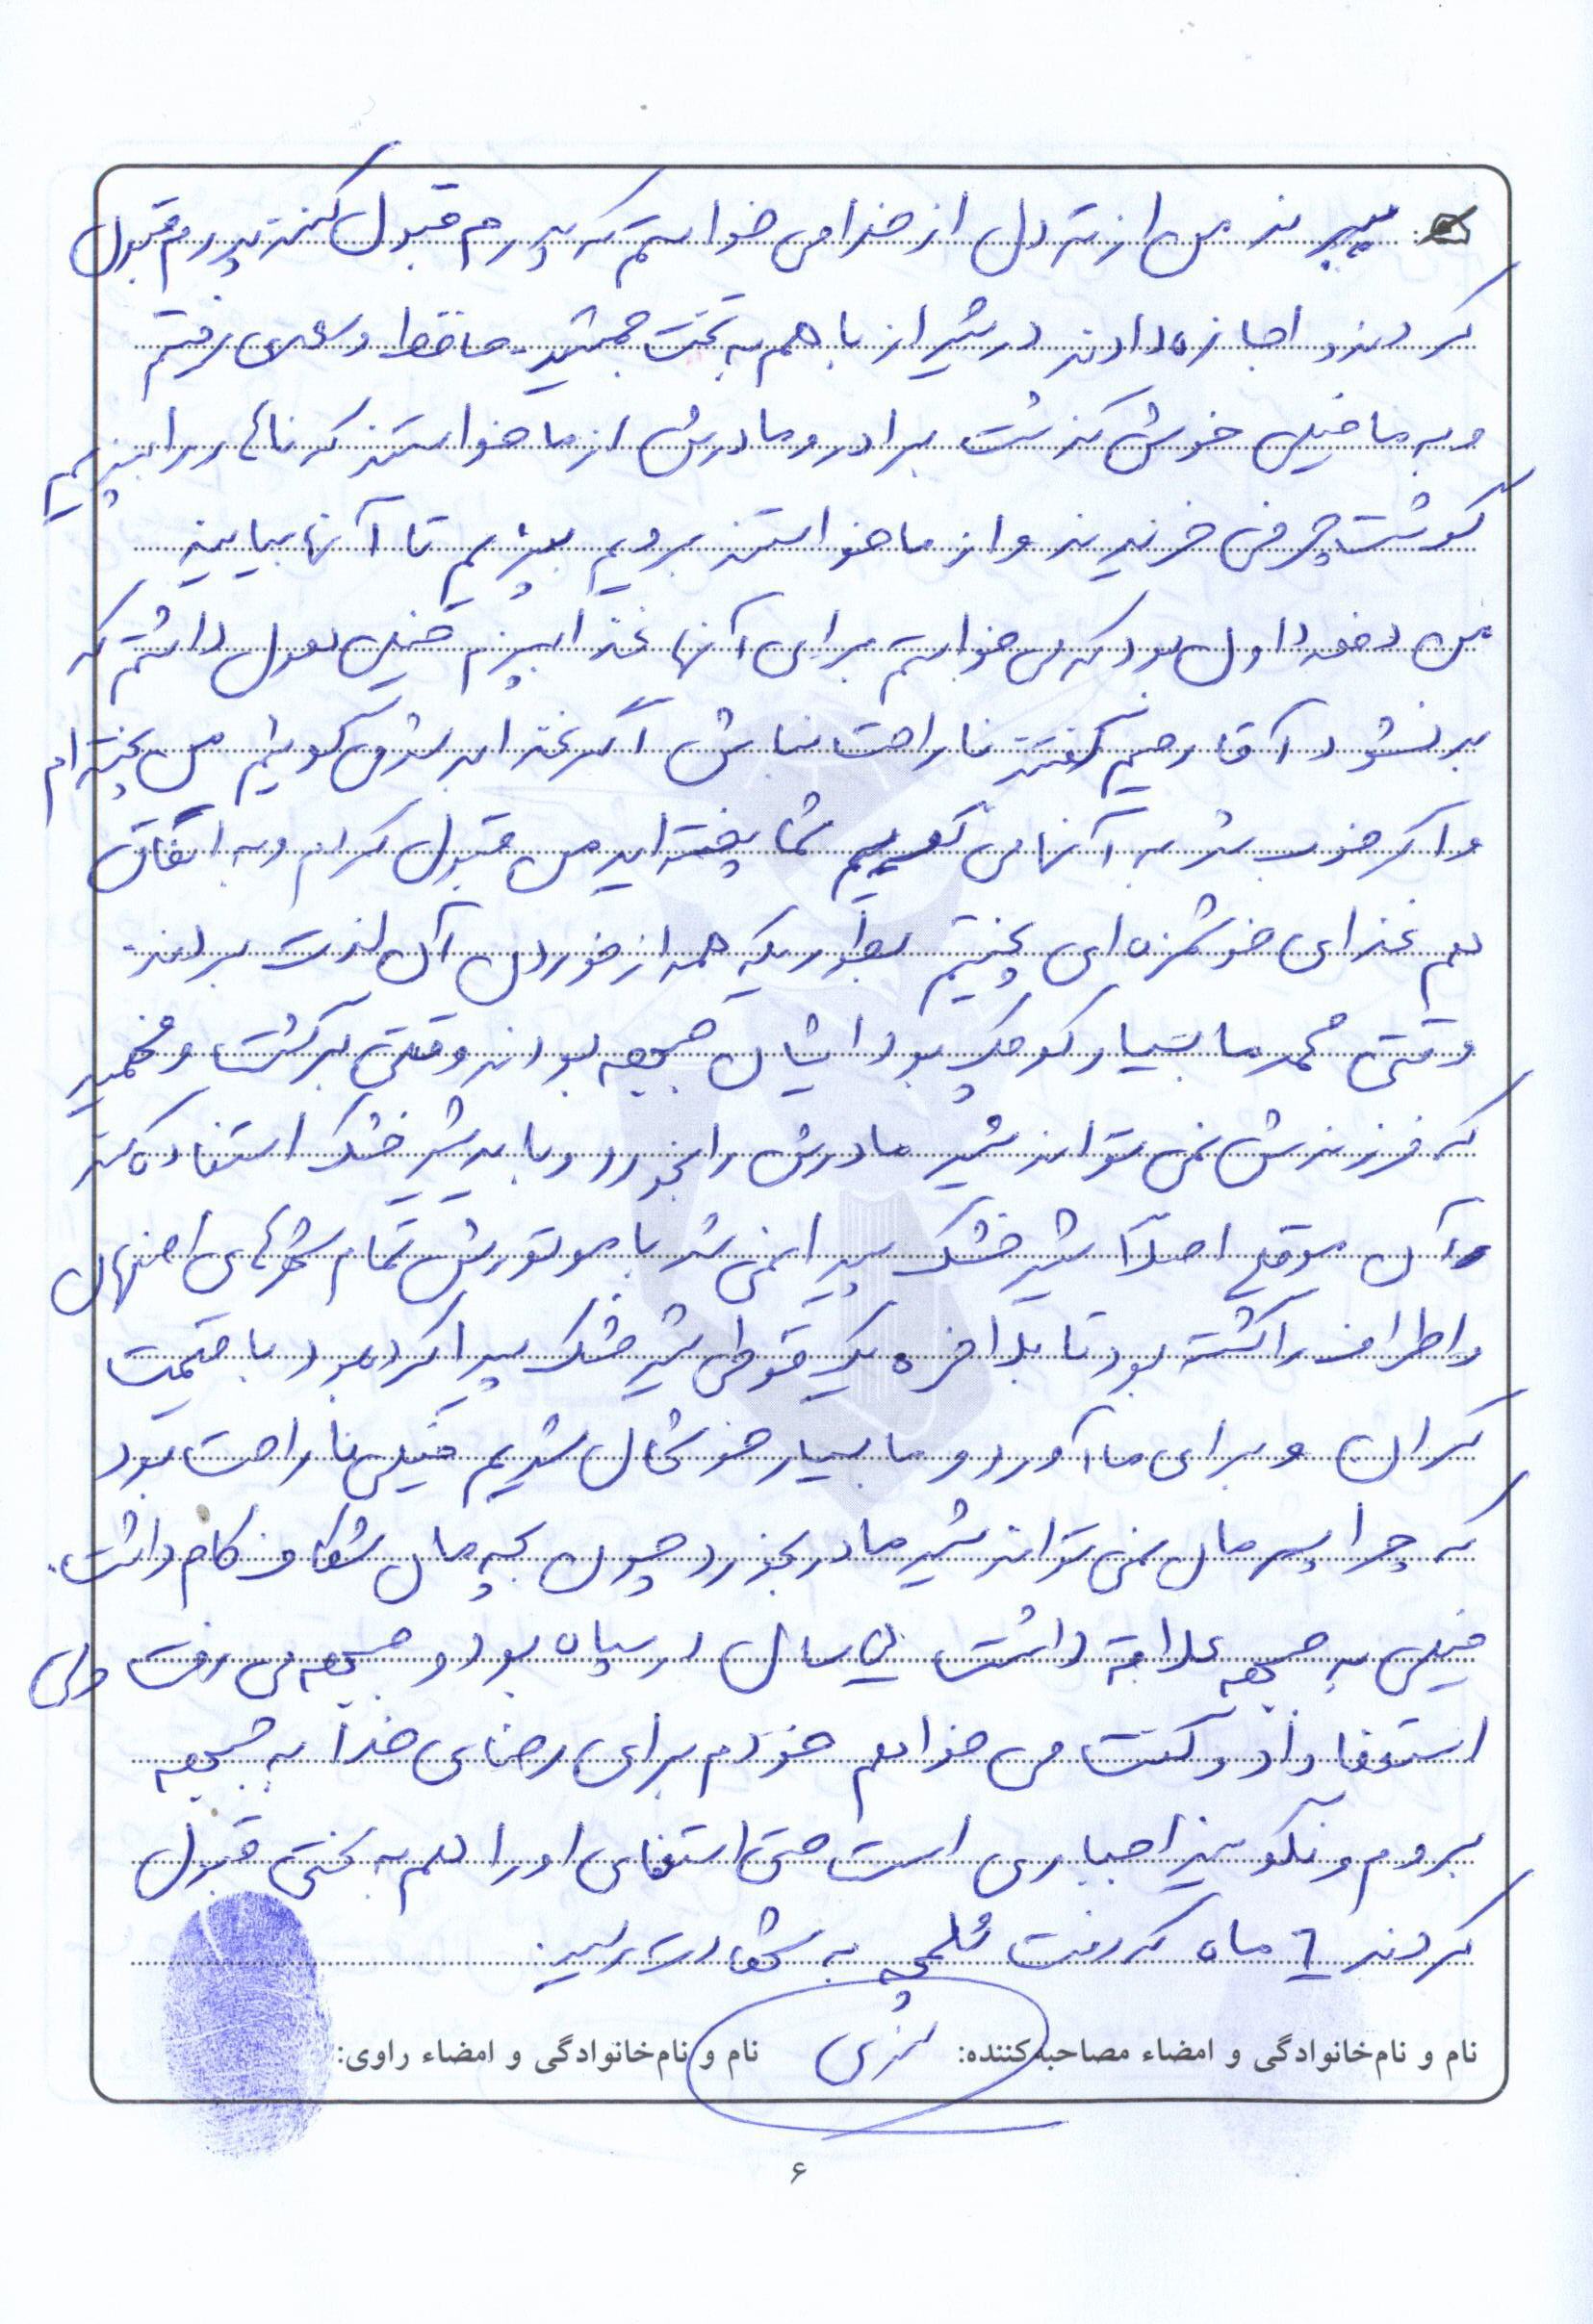 ببرند من از ته دل از خدا می خواستم که پدرم قبول کنند پدرم قبول
کردند و اجازه دادند در شیراز با هم به تخت جمشید - حافظ و سعدی رفتیم
و به ما خیلی خوش گذشت برادر و مادرش از ما خواستند که ناهار را بپزیم
گوشت چرخی خریدند و از ما خواستند برویم بپزیم تا آنها بیایند
من دفعه اول بود که می خواستم برای آنها غذا بپزم خیلی هول داشتم که
بد نشود آقا رحیم گفتند ناراحت نباش اگر غذا بد شد می گویم من پخته ام
و اگر خوب شد به آنها می گوییم شما پخته اید من قبول کردم و به اتفاق
هم غذای خوشمزه ای پختیم بطوریکه همه از خوردن آن لذت بردند.
وقتی محمد ما بسیار کوچک بود ایشان جبهه بودند وقتی برگشت و فهمید
که فرزندش نمی تواند شیر مادرش را بخورد و باید شیر خشک استفاده کند
و آن موقع اصلاً شیر خشک پیدا نمی شد با موتورش تمام شهرهای اصفهان
و اطراف را گشته بود تا بلاخره یک قوطی شیر خشک پیدا کرده بود با قیمت
گران و برای ما آورد و ما بسیار خوشحال شدیم خیلی ناراحت بود
که چرا پسرمان نمی تواند شیر مادر بخورد چون بچه مان شکاف کام داشت.
خیلی به جبهه علاقه داشت سال در سپاه بود و جبهه می رفت ولی
استعفا داد و گفت می خواهم خودم برای رضای خدا به جبهه
بروم و نگویند اجباری است حتی استعفای او را هم به سختی قبول
کردند ٦ ماه که رفت شلمچه به شهادت رسید.
نام و نام‌خانوادگی و امضاء مصاحبه‌کننده: نام و نام‌خانوادگی و امضاء راوی:
۶